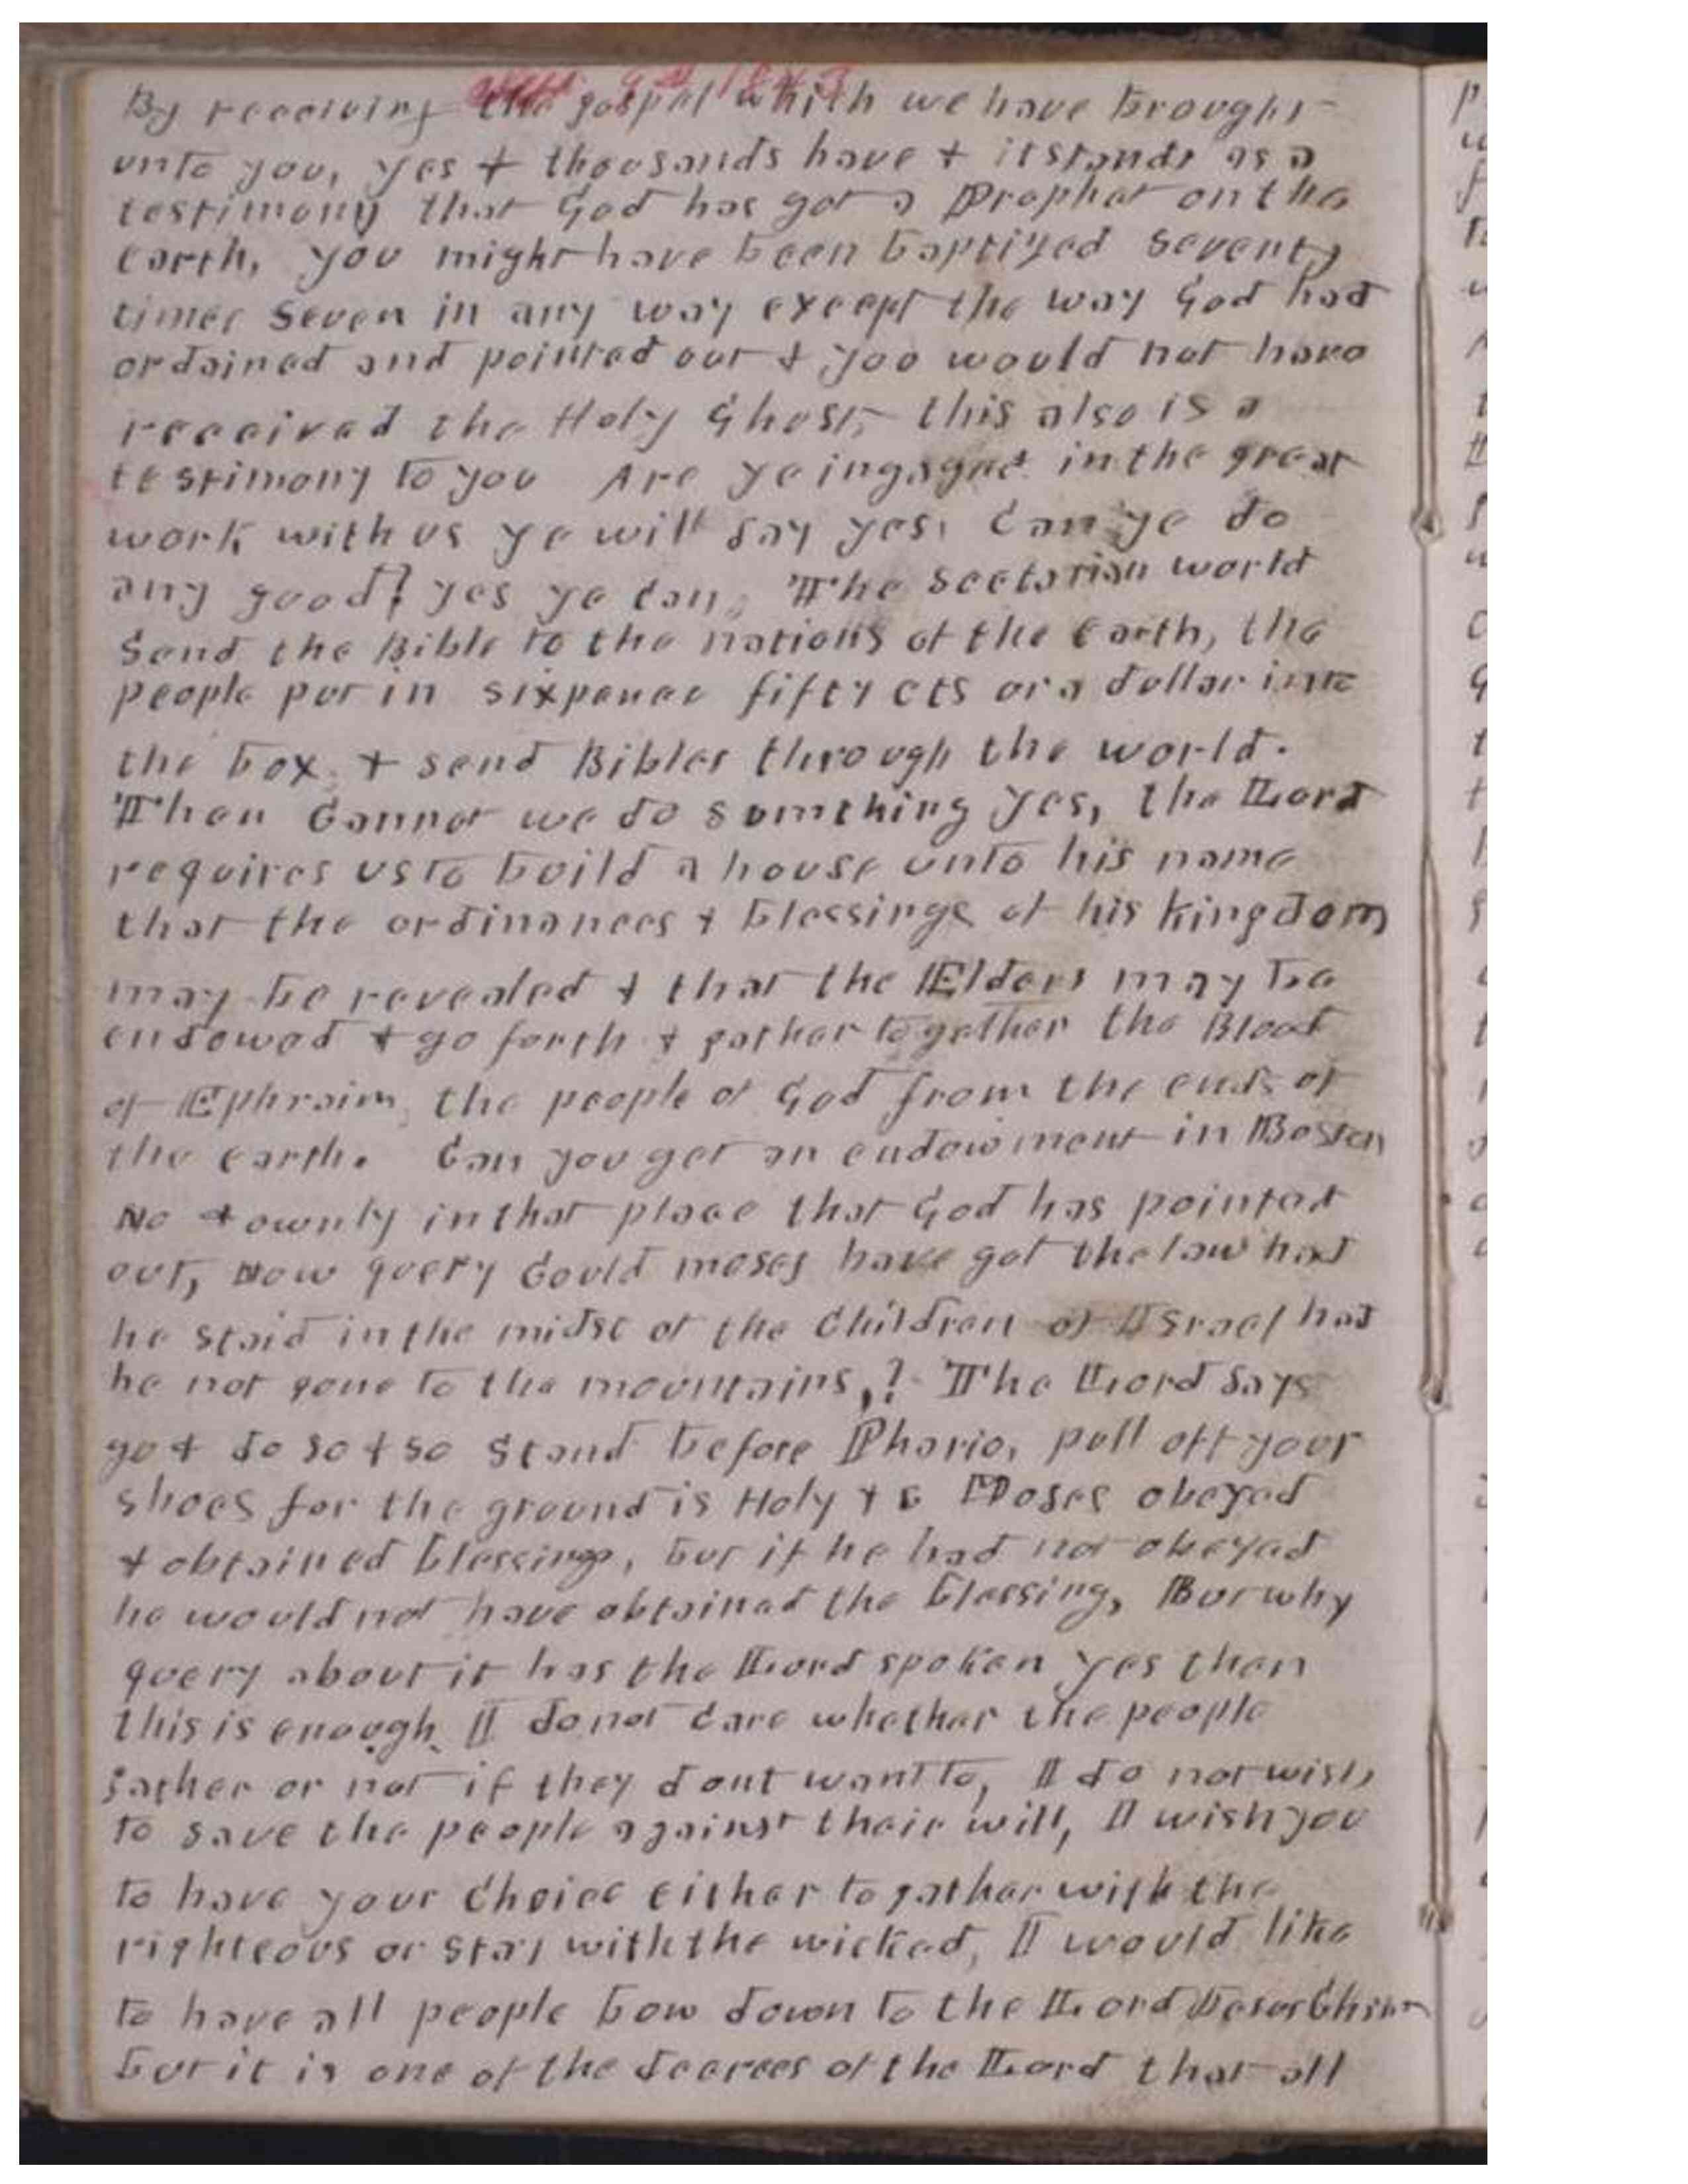 By receiving the gospel which we have brought
unto you, yes & thousands have & it stands as a
testimony that God has got a Prophet on the
earth, you might have been baptized seventy
times seven in any way except the way God had
ordained and pointed out & you would not have
received the Holy Ghost, this also is a
testimony to you Are ye ingaged in the great
work with us ye will say yes, Can ye do
any good? yes ye can, The Sectarian world
Send the Bible to the nations of the earth, the
people put in sixpence fifty cts or a dollar into
the box, & send Bibles through the world.
Then Cannot we do somthing yes, the Lord
requires us to build a house unto his name
that the ordinances & blessings of his kingdom
may be revealed & that the Elders may be
endowed & go forth & gather together the Blood
of Ephraim, the people of God from the ends of
the earth. Can you get an endowment in Boston
No & ownly in that place that God has pointed
out, Now query Could moses have got the law had
he staid in the midst of the Children of Israel had
he not gone to the mountains,? The Lord Says
go & do so & so Stand before Phario, pull off your
shoes for the ground is Holy & c Moses obeyed
& obtained blessings, but if he had not obeyed
he would not have obtained the blessing, But why
query about it has the Lord spoken yes then
this is enough I do not Care whether the people
gather or not if they dont want to, I do not wish
to save the people against their will, I wish you
to have your Choice either to gather with the
righteous or stay with the wicked, I would like
to have all people bow down to the Lord Jesus Christ
but it is one of the decrees of the Lord that all